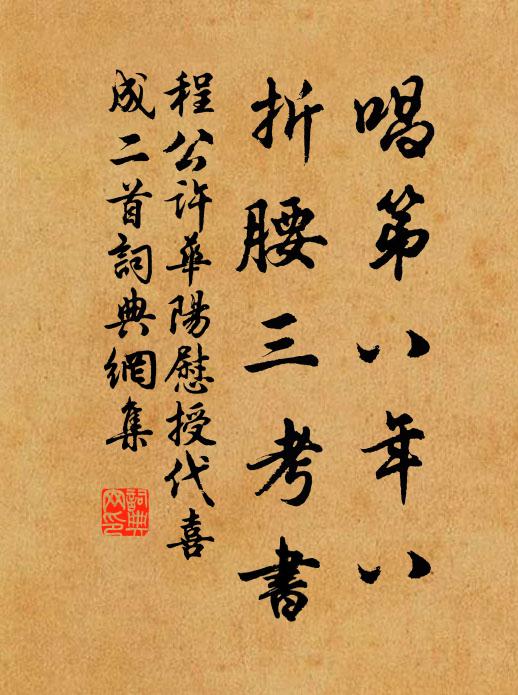 唱第八年八
折腰三考書
程公许華陽慰授代喜
成二首詞典網集
詞典网印